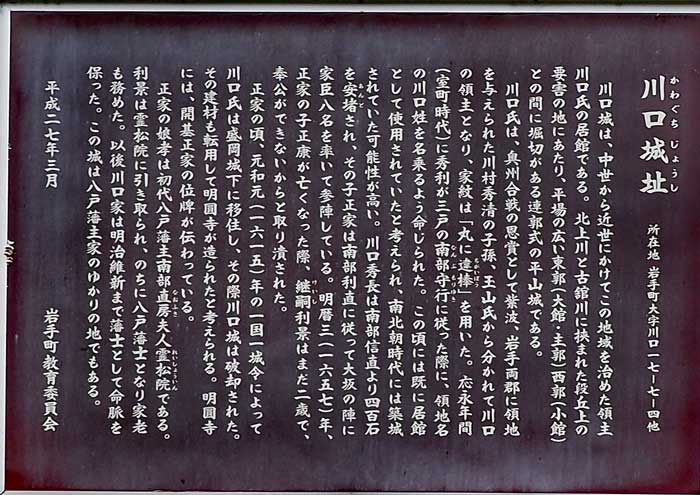 かわぐちじょうし
川口城址
所在地 岩手町大字川口一七ー七ー四他
川口城は、中世から近世にかけてこの地域を治めた領主
川口氏の居館である。北上川と古館川に挟まれた段丘上の
要害の地にあたり、平場の広い東郭(大館・主郭)西郭(小館)
との間に堀切がある連郭式の平山城である。
川口氏は、奥州合戦の恩賞として紫波、岩手両郡に領地
を与えられた川村秀清の子孫、玉山氏から分かれて川口
の領主となり、家紋は「丸に違棒」を用いた。応永年間
(室町時代)に秀利が三戸の南部守行に従った際に、領地名
の川口姓を名乗るよう命じられた。この頃には既に居館
として使用されていたと考えられ、南北朝時代には築城
されていた可能性が高い。川口秀長は南部信直より四百石
を安堵され、その子正家は南部利直に従って大坂の陣に
家臣八名を率いて参陣している。明暦三(一六五七)年、
正家の子正康が亡くなった際、継嗣利景はまだ二歳で、
奉公ができないからと取り潰された。
正家の頃、元和元(一六一五)年の一国一城令によって
川口氏は盛岡城下に移住し、その際川口城は破却された。
その建材も転用して明圓寺が造られたと考えられる。明圓寺
には、開基正家の位牌が伝わっている。
正家の娘孝は初代八戸藩主南部直房夫人霊松院である。
利景は霊松院に引き取られ、のちに八戸藩士となり家老
も務めた。以後川口家は明治維新まで藩士として命脈を
保った。この城は八戸藩主家のゆかりの地でもある。
平成二七年三月
岩手町教育委員会